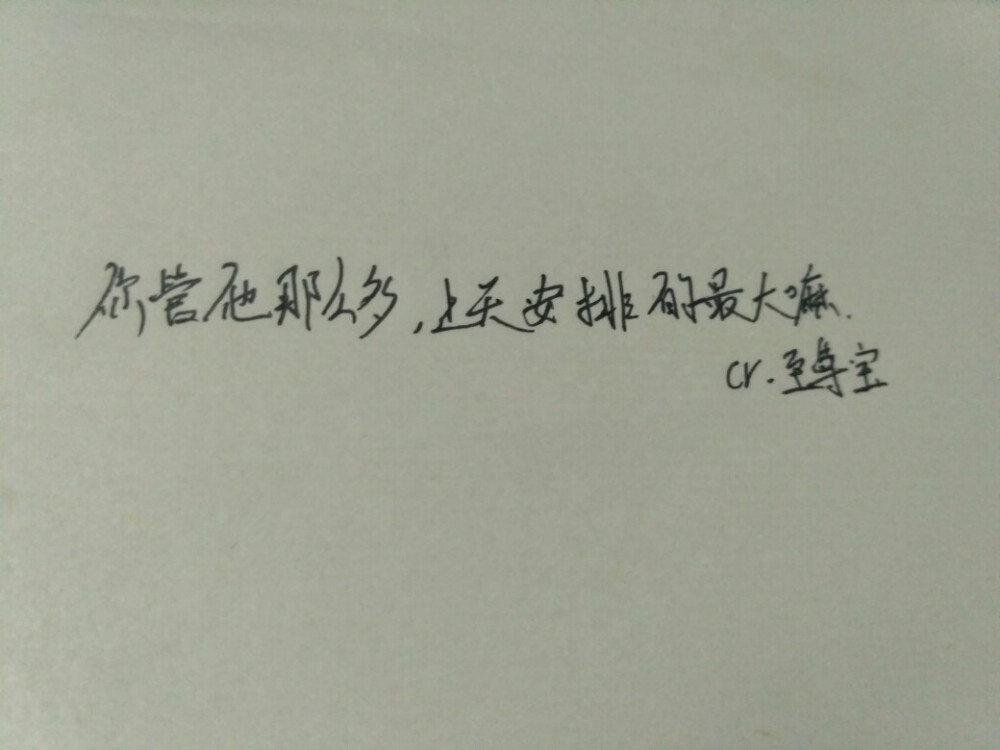 你管他那么多，上天安排的最大嘛.
cr.至尊宝